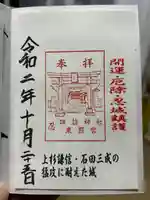 開運・厄除・忍城鎮護
奉拝
忍 諏訪神社
東照宮
令和二年十月
上杉謙信・石田三成の
猛攻に耐えた城